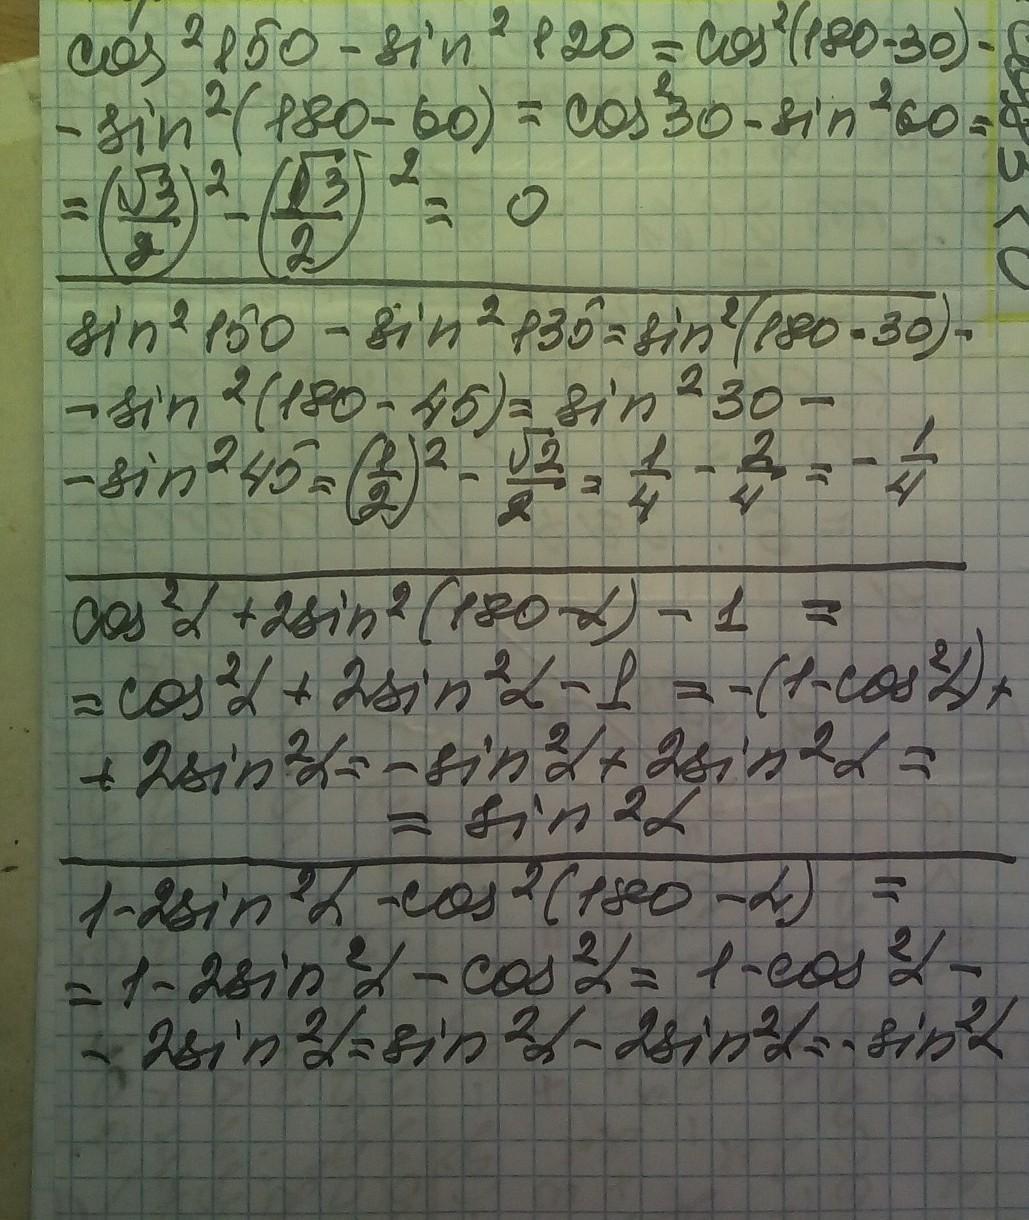 cos²150 - sin²120 = cos²(180-30) -
- sin²(180-60) = cos²30 - sin²60 =
= (√3/2)² - (√3/2)² = 0
sin²150 - sin²135 = sin²(180-30) -
- sin²(180-45) = sin²30 -
- sin²45 = (1/2)² - √2/2 = 1/4 - 2/4 = - 1/4
cos²α + 2sin²(180-α) - 1 =
= cos²α + 2sin²α - 1 = -(1-cos²α) +
+ 2sin²α = - sin²α + 2sin²α =
= sin²α
1-2sin²α - cos²(180-α) =
= 1-2sin²α - cos²α = 1-cos²α -
- 2sin²α = sin²α - 2sin²α = - sin²α
3 < 0